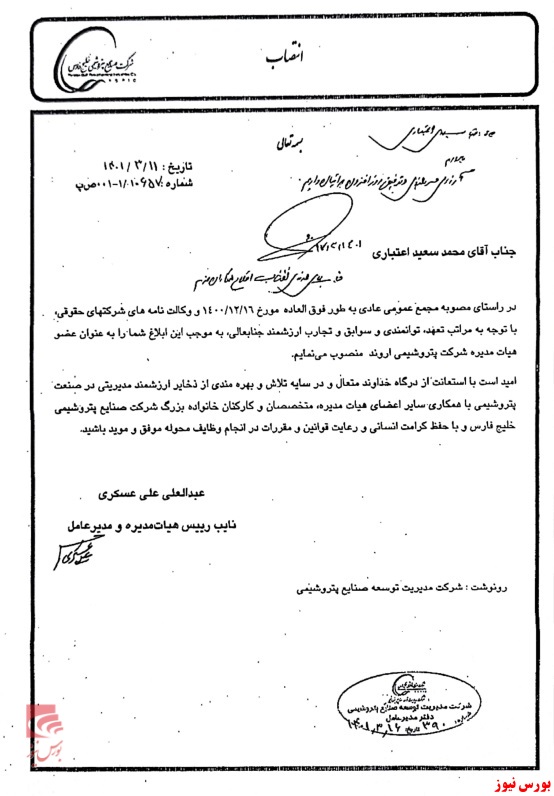 انتصاب
شرکت صنایع پتروشیمی خلیج فارس
بسمه تعالی
تاریخ : ۱۴۰۱/۳/۱۱
شماره : ۱/۱۰۶۵۷-۰۰۱ص‌پ
جناب آقای محمد سعید اعتباری
در راستای مصوبه مجمع عمومی عادی به طور فوق العاده مورخ ۱۴۰۰/۱۲/۱۶ و وکالت نامه های شرکتهای حقوقی،
با توجه به مراتب تعهد، توانمندی و سوابق و تجارب ارزشمند جنابعالی، به موجب این ابلاغ شما را به عنوان عضو
هیات مدیره شرکت پتروشیمی اروند منصوب می‌نمایم.
امید است با استعانت از درگاه خداوند متعال و در سایه تلاش و بهره مندی از ذخایر ارزشمند مدیریتی در صنعت
پتروشیمی با همکاری سایر اعضای هیات مدیره، متخصصان و کارکنان خانواده بزرگ شرکت صنایع پتروشیمی
خلیج فارس و با حفظ کرامت انسانی و رعایت قوانین و مقررات در انجام وظایف محوله موفق و موید باشید.
عبدالعلی علی عسکری
نایب رییس هیات‌مدیره و مدیرعامل
رونوشت : شرکت مدیریت توسعه صنایع پتروشیمی
شرکت مدیریت توسعه صنایع پتروشیمی
دفتر مدیرعامل
بورس نیوز
بورس نیوز